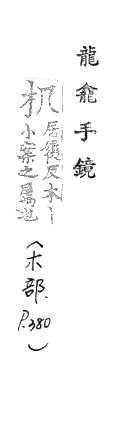 龍龕手鏡
机居履反木丨
小案之屬也
(木部.
P.380)